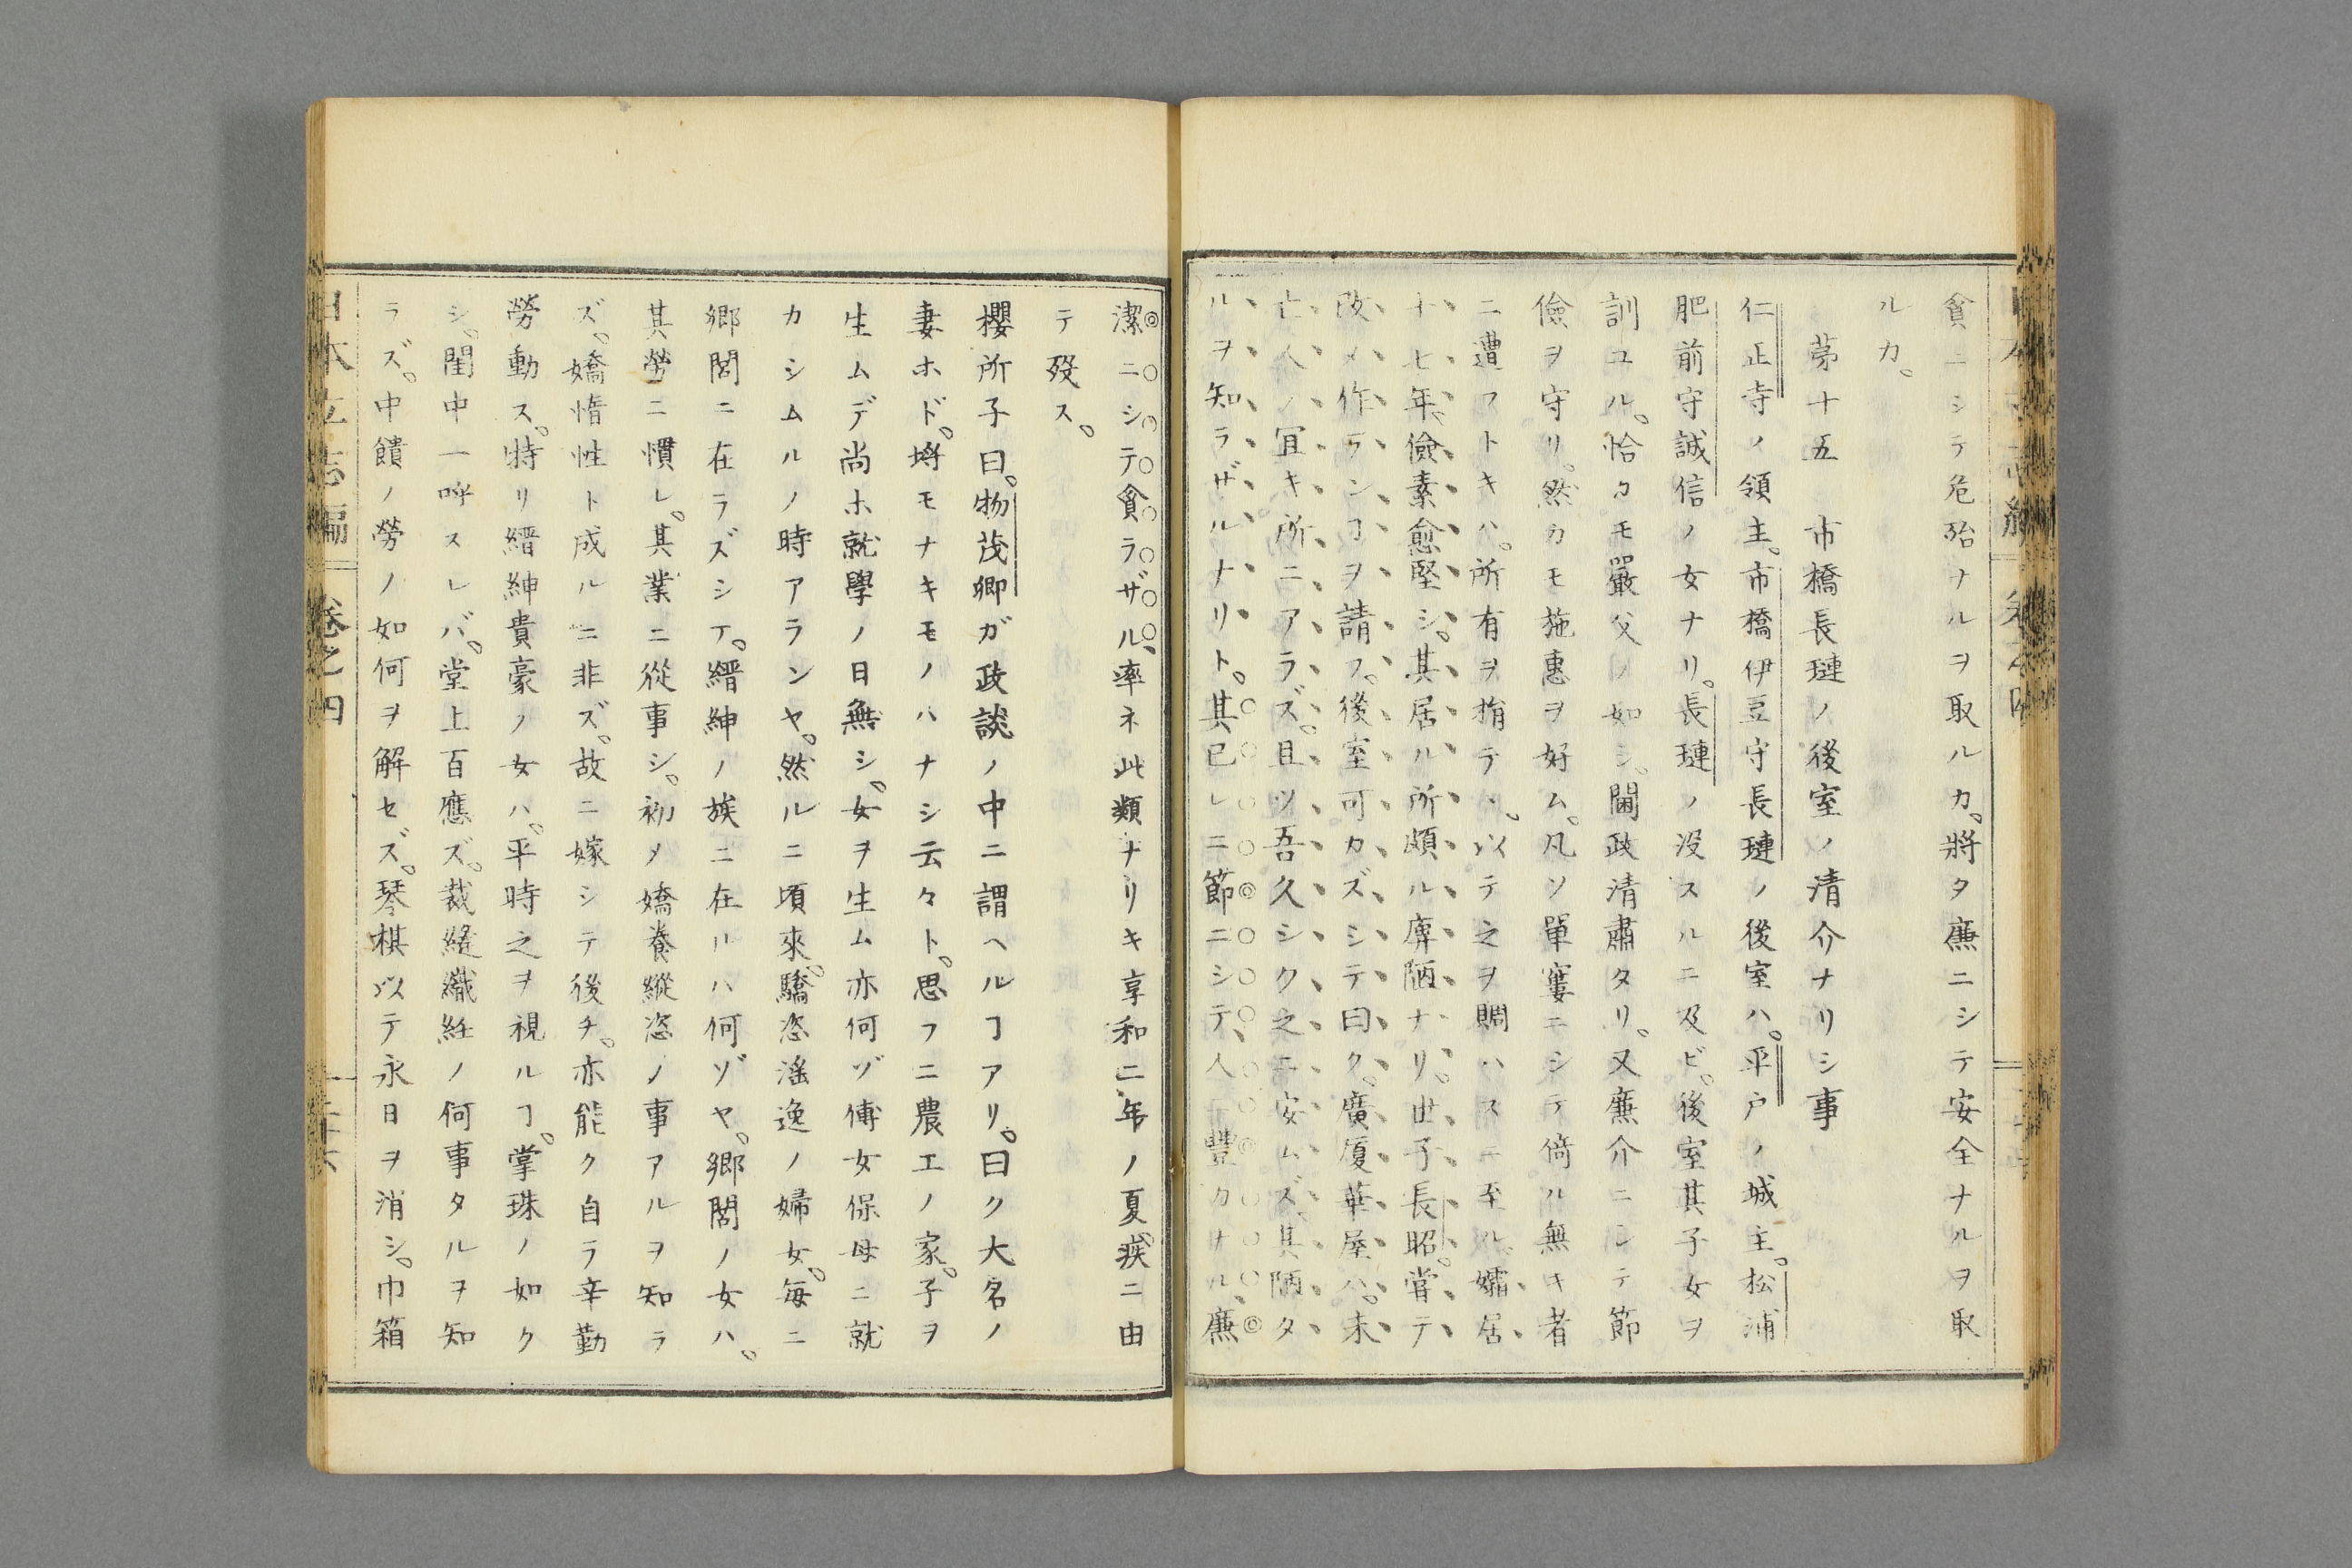 貪ニシテ危殆ナルヲ取ルカ。將タ廉ニシテ安全ナルヲ取
ルカ。
苐十五 市橋長璉ノ後室ノ清介ナリシ事
仁正寺ノ領主。市橋伊豆守長璉ノ後室ハ。平戸ノ城主。松浦
肥前守誠信ノ女ナリ。長璉ノ没スルニ及ビ。後室其子女ヲ
訓ユル。恰カモ嚴父ノ如シ。閫政清肅タリ。又廉介ニシテ節
儉ヲ守リ。然カモ施惠ヲ好ム。凡ソ單寠ニシテ倚ル無キ者
ニ遭フトキハ。所有ヲ捐テヽ。以テ之ヲ賙ハスニ至ル。孀居
十七年。儉素愈堅シ。其居ル所頗ル庳陋ナリ。世子長昭。甞テ
改メ作ランヿヲ請フ。後室可カズシテ曰ク。廣厦華屋ハ。未
亡人ノ宜キ所ニアラズ。且ツ吾久シク之ニ安ムズ。其陋タ
ルヲ知ラザルナリト。其已レニ節ニシテ、人ニ豐カナル、廉
潔ニシテ貪ラザル、率ネ此類ナリキ享和二年ノ夏疾ニ由
テ歿ス。
櫻所子曰。物茂卿ガ政談ノ中ニ謂ヘルヿアリ。曰ク大名ノ
妻ホド。埒モナキモノハナシ云々ト。思フニ農工ノ家。子ヲ
生ムデ尚ホ就學ノ日無シ。女ヲ生ム亦何ヅ傅女保母ニ就
カシムルノ時アランヤ。然ルニ頃來。驕恣滛逸ノ婦女。毎ニ
郷閭ニ在ラズシテ。縉紳ノ族ニ在ルハ何ゾヤ。郷閭ノ女ハ。
其勞ニ慣レ。其業ニ從事シ。初メ嬌養縱恣ノ事アルヲ知ラ
ズ。嬌惰性ト成ルニ非ズ。故ニ嫁シテ後チ。亦能ク自ラ辛勤
勞動ス。特リ縉紳貴豪ノ女ハ。平時之ヲ視ルヿ。掌珠ノ如ク
シ。閨中一呼スレバ。堂上百應ズ。裁縫織紝ノ何事タルヲ知
ラズ。中饋ノ勞ノ如何ヲ解セズ。琴棋以テ永日ヲ消シ。巾箱
日本立志編 卷之四